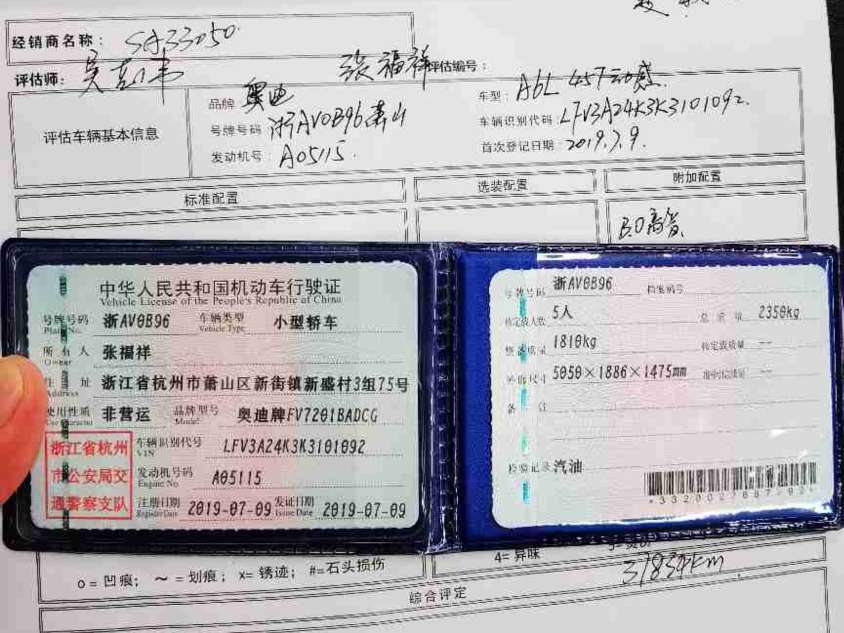 经销商名称：SA33050
评估师：吴 张福祥 评估编号：
评估车辆基本信息
品牌 奥迪 车型：A6L 45T动感
号牌号码 浙AV0B96 萧山 车辆识别代码：LFV3A24K3K3101092
发动机号 A05115. 首次登记日期：2019.7.9.
标准配置 选装配置 附加配置
B.O高音
中华人民共和国机动车行驶证
Vehicle License of the People's Republic of China
号牌号码 浙AV0B96 车辆类型 小型轿车
Plate No. Vehicle Type
所有人 张福祥
Owner
住址 浙江省杭州市萧山区新街镇新盛村3组75号
Address
使用性质 非营运 品牌型号 奥迪牌FV7201BADCG
Use Character Model
浙江省杭州
市公安局交
通警察支队
车辆识别代号 LFV3A24K3K3101092
VIN
发动机号码 A05115
Engine No.
注册日期 2019-07-09 发证日期 2019-07-09
Register Date Issue Date
号牌号码 浙AV0B96 档案编号
核定载人数 5人 总质量 2350kg
整备质量 1810kg 核定载质量 --
外廓尺寸 5050×1886×1475mm 准牵引总质量 --
备注
检验记录 汽油
o＝凹痕；～＝划痕；x=锈迹；#=石头损伤
4=异味
37834km
综合评定